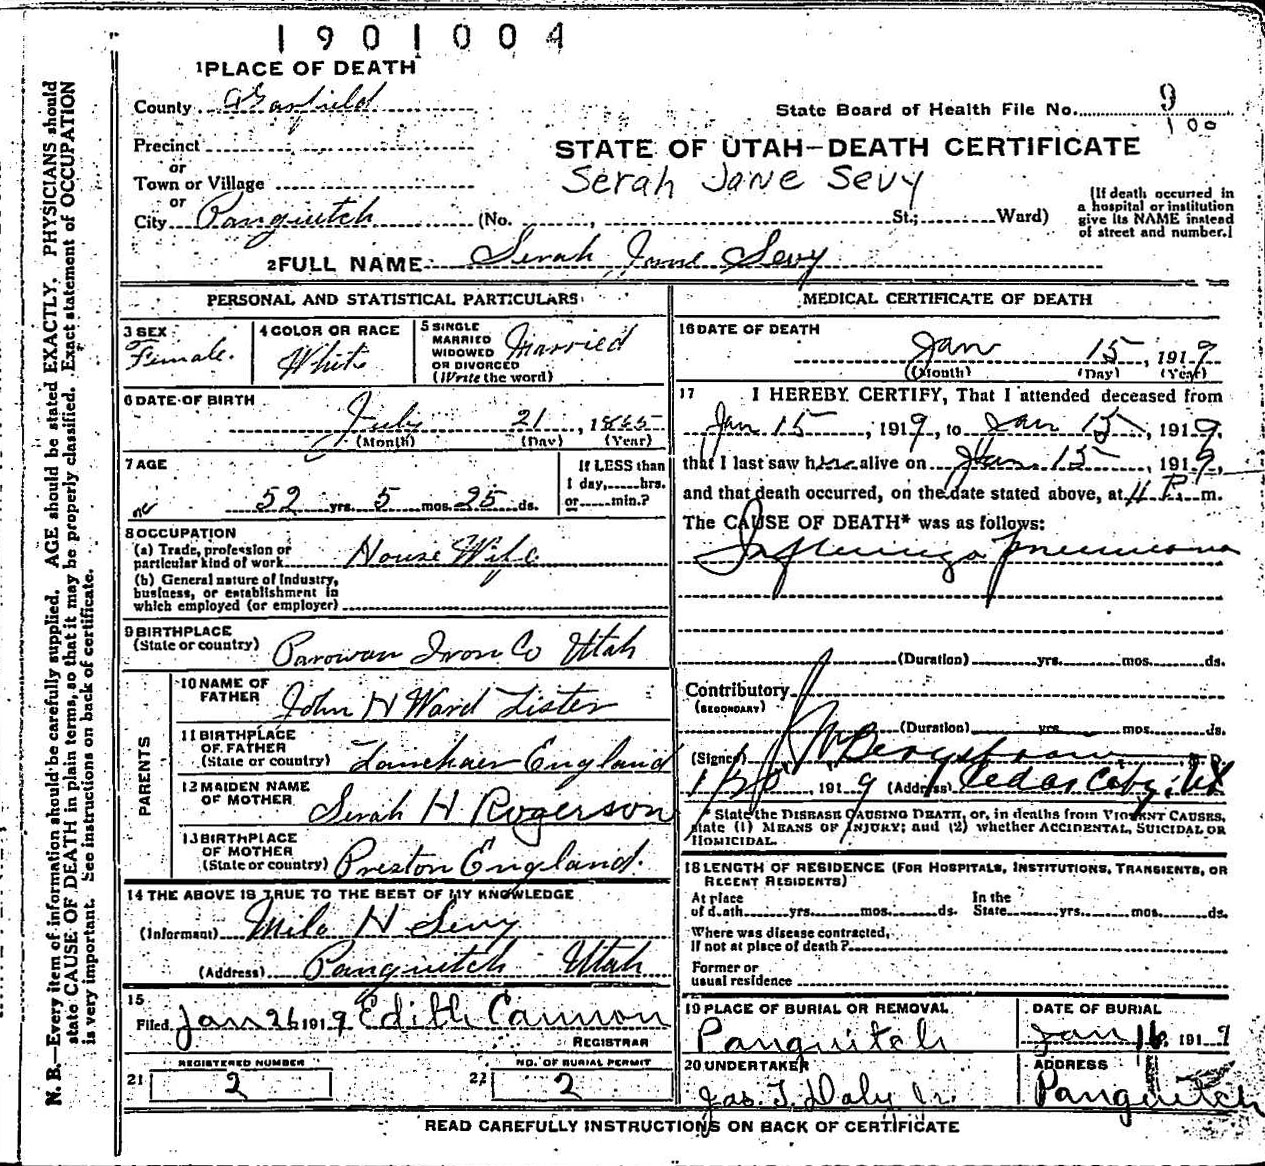 1901004
1 PLACE OF DEATH
County Garfield
State Board of Health File No. 9
100
Precinct
or
Town or Village
or
City Panguitch (No. , St.; Ward)
STATE OF UTAH—DEATH CERTIFICATE
Serah Jane Sevy
[If death occurred in
a hospital or institution
give its NAME instead
of street and number.]
2 FULL NAME Serah Jane Sevy
PERSONAL AND STATISTICAL PARTICULARS
3 SEX Female.
4 COLOR OR RACE White
5 SINGLE
MARRIED
WIDOWED
OR DIVORCED
(Write the word) Married
6 DATE OF BIRTH
July 21, 1865
(Month) (Day) (Year)
7 AGE
52 yrs. 5 mos. 25 ds.
If LESS than
1 day, hrs.
or min.?
8 OCCUPATION
(a) Trade, profession or
particular kind of work House Wife
(b) General nature of Industry,
business, or establishment in
which employed (or employer)
9 BIRTHPLACE
(State or country) Parowan Iron Co Utah
PARENTS
10 NAME OF
FATHER John H Ward Lister
11 BIRTHPLACE
OF FATHER
(State or country) England
12 MAIDEN NAME
OF MOTHER Serah H Rogerson
13 BIRTHPLACE
OF MOTHER
(State or country) Preston England.
14 THE ABOVE IS TRUE TO THE BEST OF MY KNOWLEDGE
(Informant) Milo H Sevy
(Address) Panguitch Utah
15
Filed Jan 26 1919 Edith Cannon
REGISTRAR
REGISTERED NUMBER
21 2
NO. OF BURIAL PERMIT
22 2
MEDICAL CERTIFICATE OF DEATH
16 DATE OF DEATH
Jan 15, 1919
(Month) (Day) (Year)
17 I HEREBY CERTIFY, That I attended deceased from
Jan 15, 1919, to Jan 15, 1919,
that I last saw her alive on Jan 15, 1919,
and that death occurred, on the date stated above, at P. m.
The CAUSE OF DEATH* was as follows:
Influenza Pneumonia
(Duration) yrs. mos. ds.
Contributory
(SECONDARY)
(Duration) yrs. mos. ds.
(Signed) Bergstrom
1/20, 1919 (Address) Cedar City, Ut
* State the DISEASE CAUSING DEATH, or, in deaths from VIOLENT CAUSES,
state (1) MEANS OF INJURY; and (2) whether ACCIDENTAL, SUICIDAL OR
HOMICIDAL.
18 LENGTH OF RESIDENCE (FOR HOSPITALS, INSTITUTIONS, TRANSIENTS, OR
RECENT RESIDENTS)
At place
of death yrs. mos. ds.
In the
State yrs. mos. ds.
Where was disease contracted,
if not at place of death?
Former or
usual residence
19 PLACE OF BURIAL OR REMOVAL
Panguitch
DATE OF BURIAL
Jan 16, 1919
20 UNDERTAKER
Jas. T. Daly Jr.
ADDRESS
Panguitch
READ CAREFULLY INSTRUCTIONS ON BACK OF CERTIFICATE
N. B.—Every item of information should be carefully supplied. AGE should be stated EXACTLY. PHYSICIANS should
state CAUSE OF DEATH in plain terms, so that it may be properly classified. Exact statement of OCCUPATION
is very important. See instructions on back of certificate.